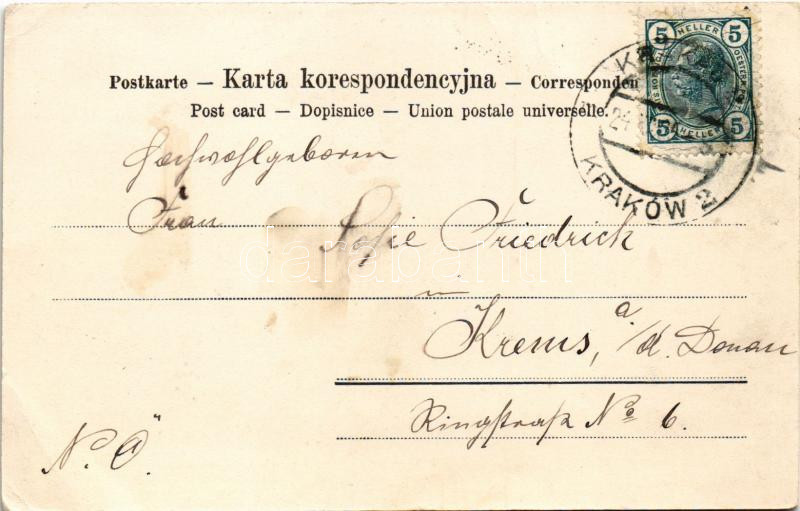 Postkarte — Karta korespondencyjna — Corresponden
Post card — Dopisnice — Union postale universelle.
5 HELLER 5
5 HELLER 5
KRAKÓW 2
24
Hochwohlgeboren
Frau Sofie Friedrich
in
Krems, a/d. Donau
Ringstraße No 6.
N. Ö.
darabanth